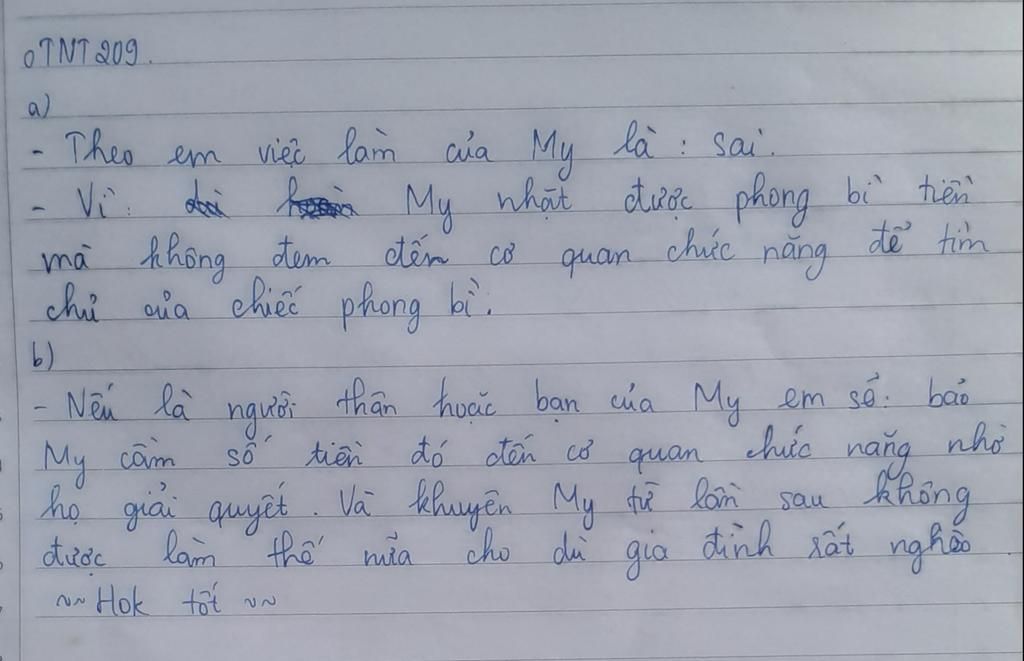 oTNT209.
a)
- Theo em việc làm của My là : sai.
- Vì : My nhặt được phong bì tiền
mà không đem đến cơ quan chức năng để tìm
chủ của chiếc phong bì.
b)
- Nếu là người thân hoặc bạn của My em sẽ : bảo
My cầm số tiền đó đến cơ quan chức năng nhờ
họ giải quyết. Và khuyên My từ lần sau không
được làm thế nữa cho dù gia đình rất nghèo.
~~ Hok tốt ~~